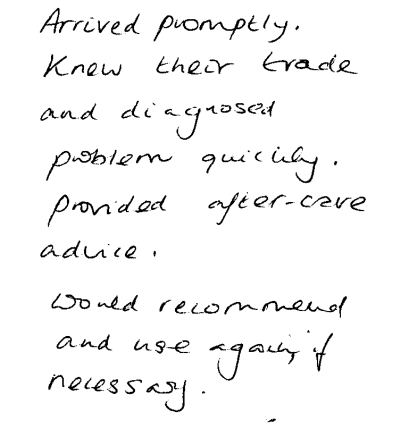 Arrived promptly.
Knew their trade
and diagnosed
problem quickly.
Provided after-care
advice.
Would recommend
and use again, if
necessary.